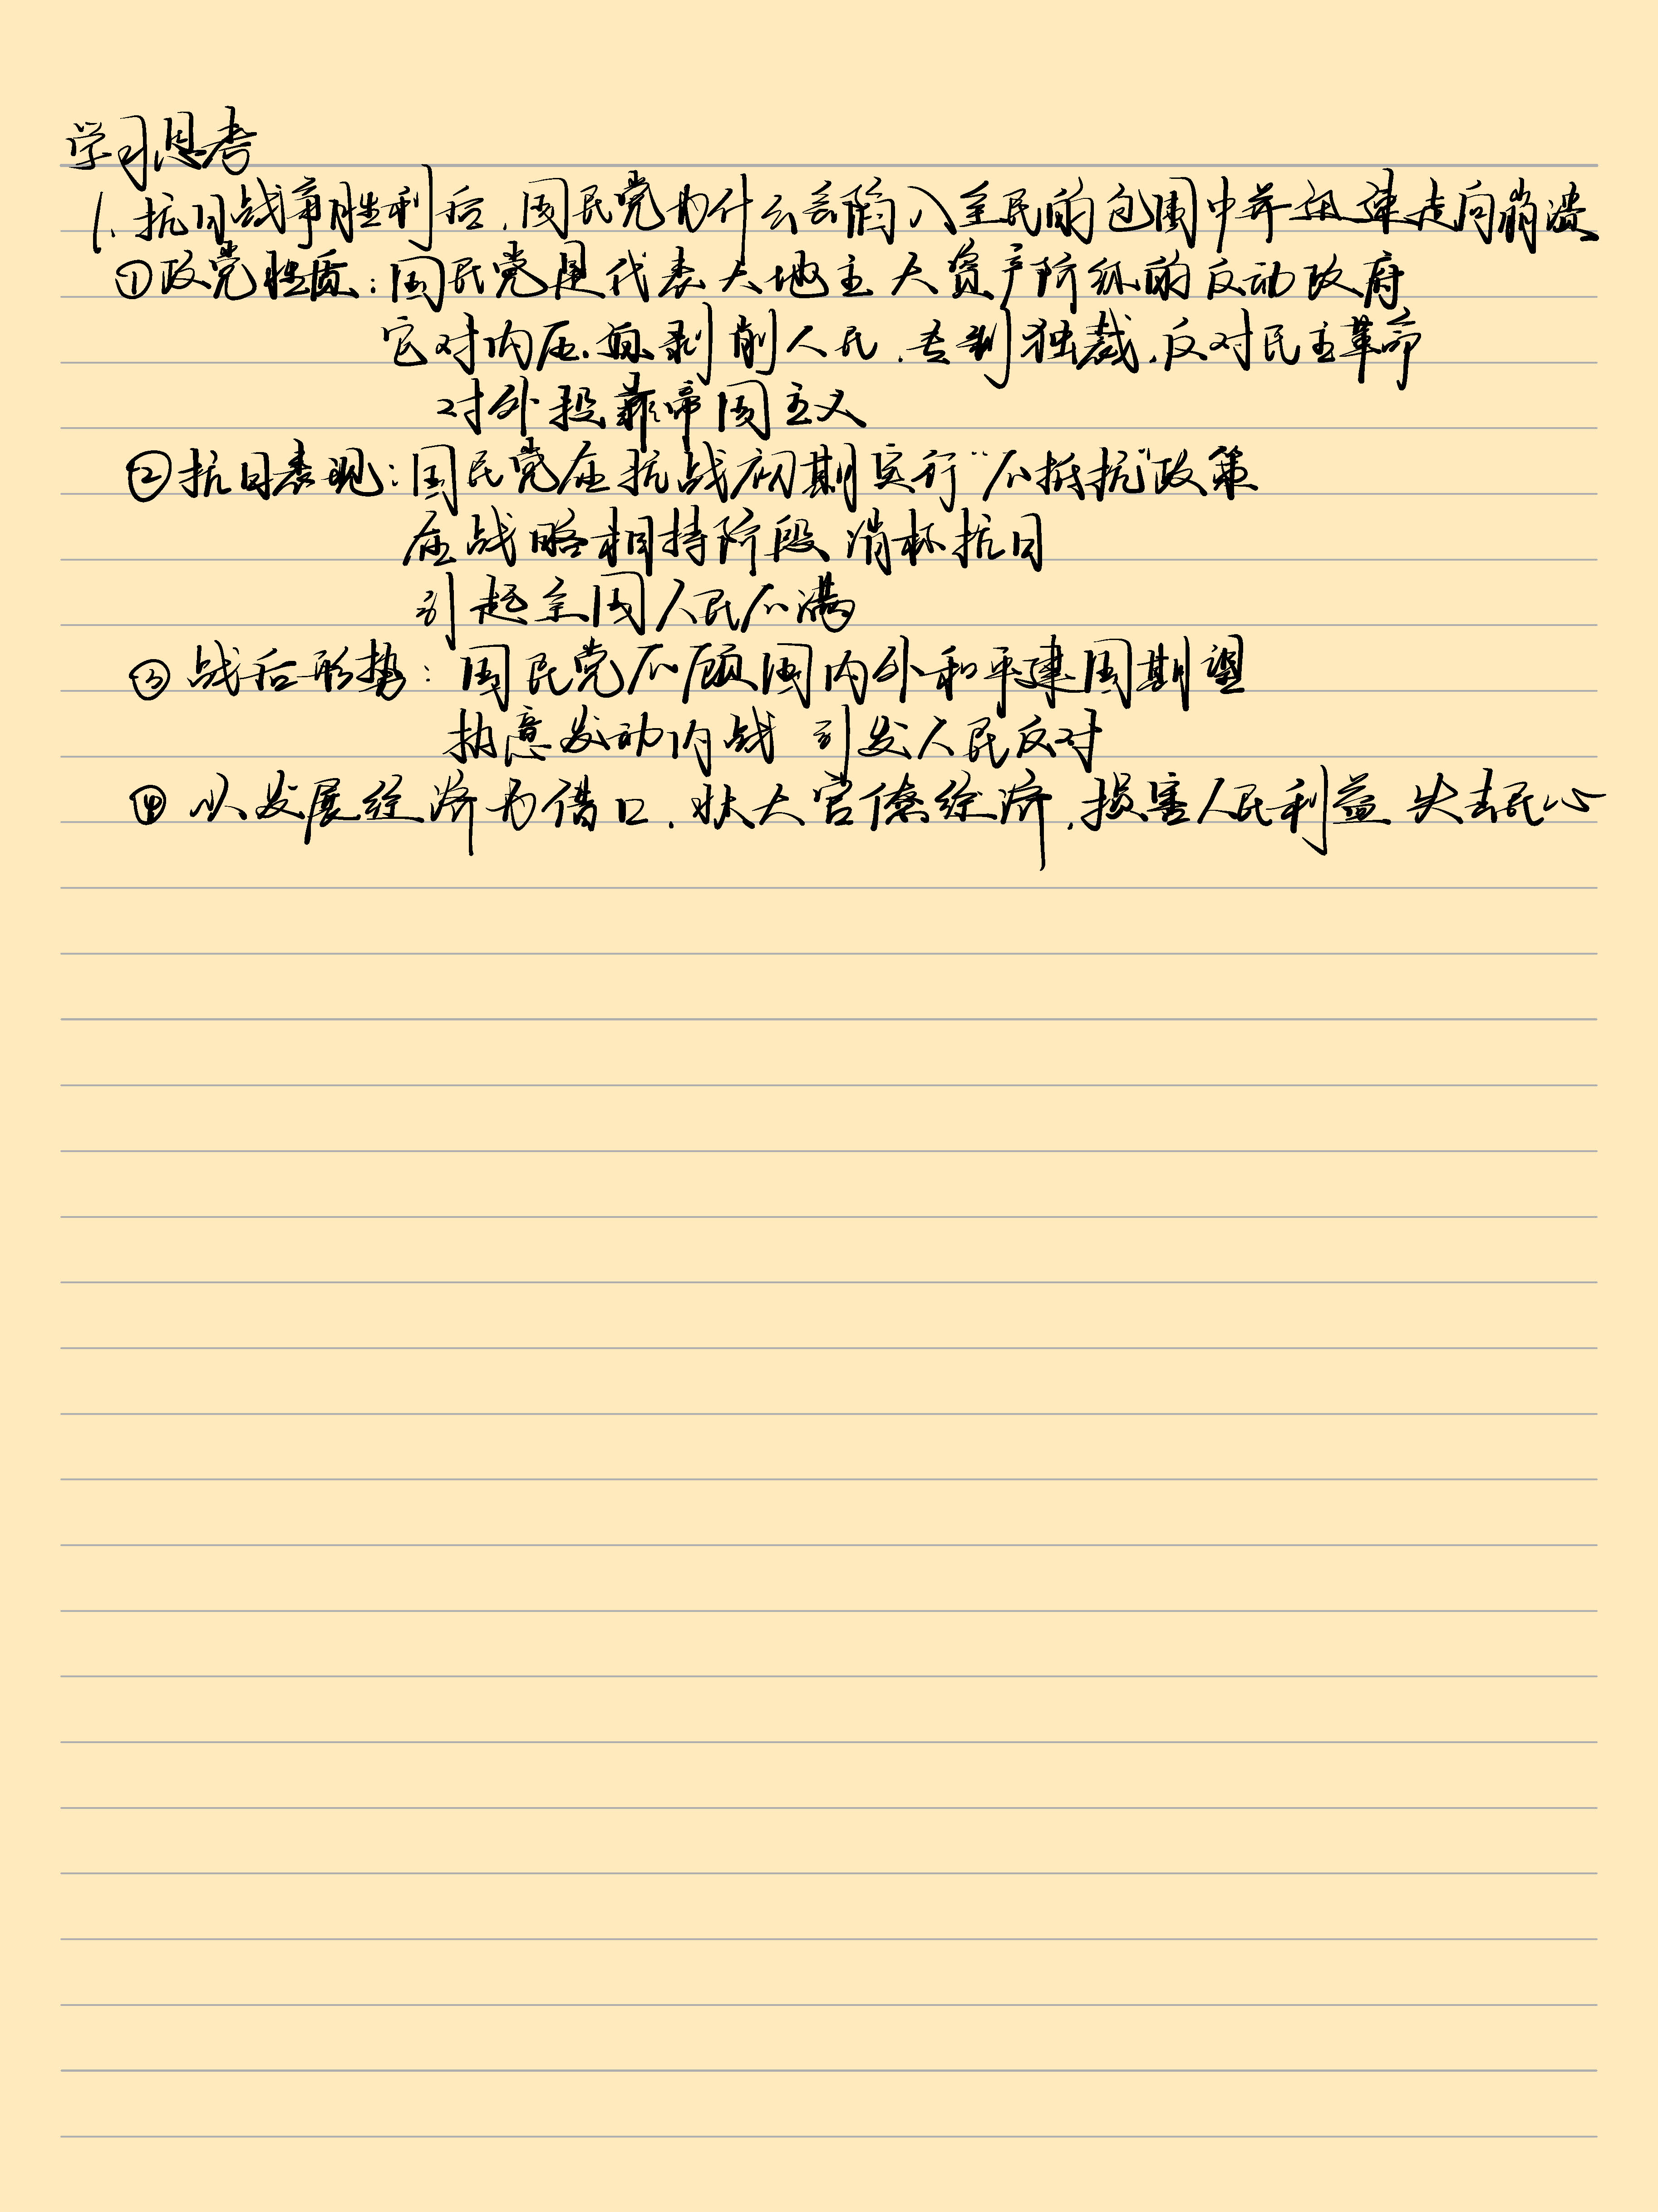 学习思考
1.抗日战争胜利后,国民党为什么会陷入全民的包围中并迅速走向崩溃
①政党性质:国民党是代表大地主大资产阶级的反动政府
它对内压迫剥削人民,专制独裁,反对民主革命
对外投靠帝国主义
②抗日表现:国民党在抗战初期实行“不抵抗”政策
在战略相持阶段 消极抗日
引起全国人民不满
③战后形势:国民党不顾国内外和平建国期望
执意发动内战 引发人民反对
④以发展经济为借口,扶大官僚经济,损害人民利益 失去民心